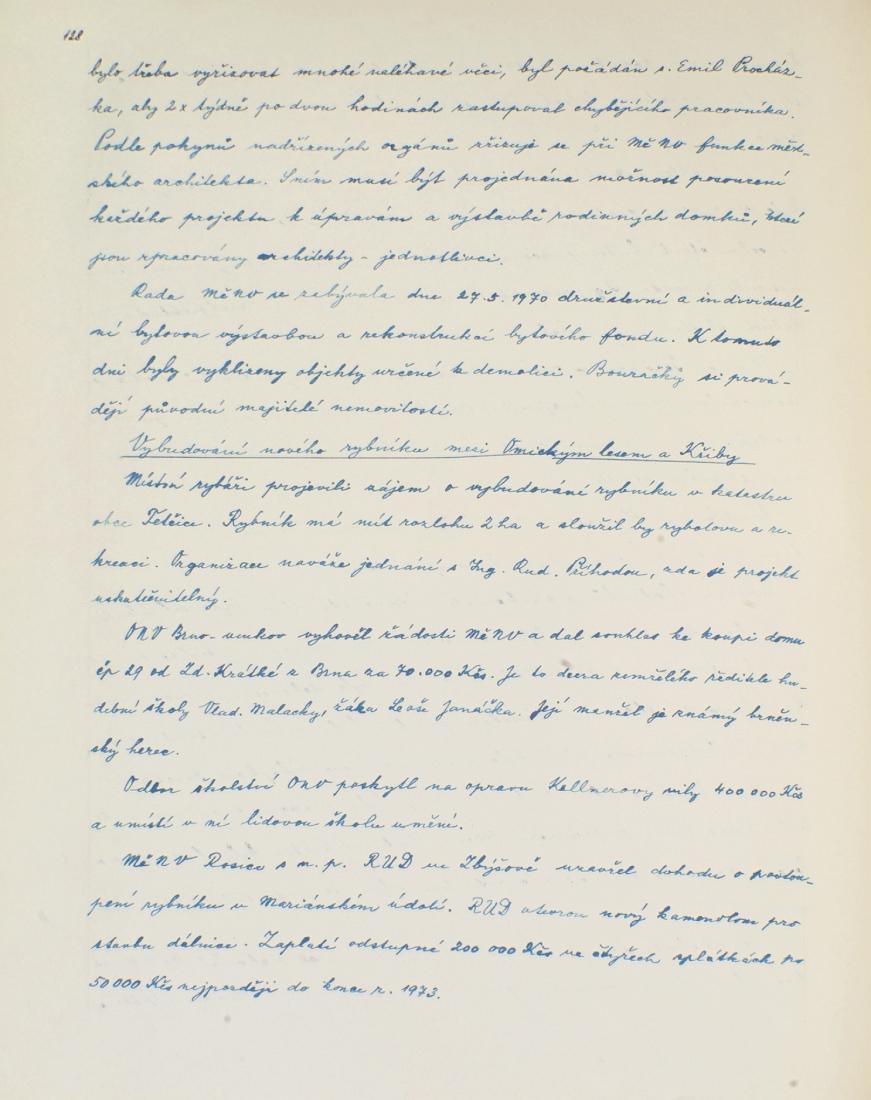 128
bylo třeba vyřizovat mnohé naléhavé věci, byl požádán s. Emil Procház-
ka, aby 2x týdně po dvou hodinách zastupoval chybějícího pracovníka.
Podle pokynů nadřízených orgánů zřizuje se při MěNV funkce měst-
ského architekta. S ním musí být projednána možnost posouzení
každého projektu k úpravám a výstavbě rodinných domků, které
jsou zpracovány architekty - jednotlivci.
Rada MěNV se zabývala dne 27.5.1970 družstevní a individuál-
ní bytovou výstavbou a rekonstrukcí bytového fondu. K tomuto
dni byly vyklizeny objekty určené k demolici. Bouračky si prová-
dějí původní majitelé nemovitostí.
Vybudování nového rybníku mezi Omickým lesem a Křiby
Místní rybáři projevili zájem o vybudování rybníku v katastru
obce Tetčice. Rybník má mít rozlohu 2 ha a sloužil by rybolovu a re-
kreaci. Organizace naváže jednání s Ing. Rud. Příhodou, zda je projekt
uskutečnitelný.
ONV Brno-venkov vyhověl žádosti MěNV a dal souhlas ke koupi domu
čp 29 od Zd. Krátké z Brna za 70.000 Kčs. Je to dcera zemřelého ředitele hu-
dební školy Vlad. Malacky, žáka Leoše Janáčka. Její manžel je známý brněn-
ský herec.
Odbor školství ONV poskytl na opravu Kellnerovy vily 400 000 Kčs
a umístí v ní lidovou školu umění.
MěNV Rosice s n. p. RUD ve Zbýšově uzavřel dohodu o postou-
pení rybníku v Mariánském údolí. RUD otevrou nový kamenolom pro
stavbu dálnice. Zaplatí odstupné 200 000 Kčs ve čtyřech splátkách po
50 000 Kčs nejpozději do konce r. 1973.